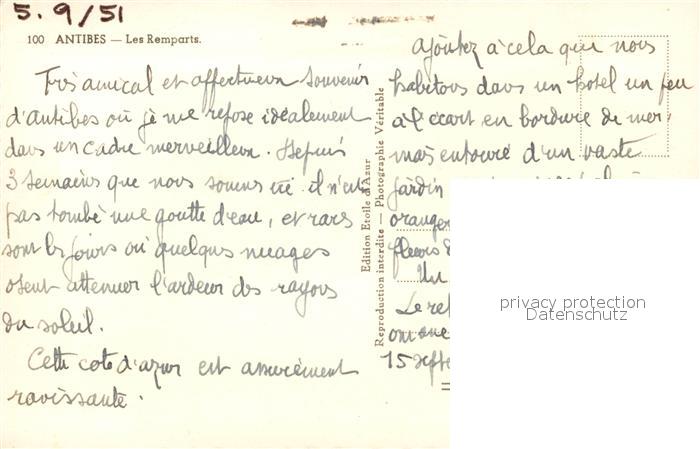 5.9/51
100 ANTIBES — Les Remparts.
Très amical et affectueux souvenir
d'antibes où je me repose idéalement
dans un cadre merveilleux. Depuis
3 semaines que nous sommes ici il n'est
pas tombé une goutte d'eau, et rares
sont les jours où quelques nuages
osent attenuer l'ardeur des rayons
du soleil.
Cette cote d'azur est assurément
ravissante.
Edition Etoile d'Azur
Reproduction interdite — Photographie Véritable
ajoutez à cela que nous
habitons dans un hotel un peu
à l'écart en bordure de mer,
mais entouré d'un vaste
jardin
oranger
fleurs
Un
Le
15 sept
privacy protection
Datenschutz